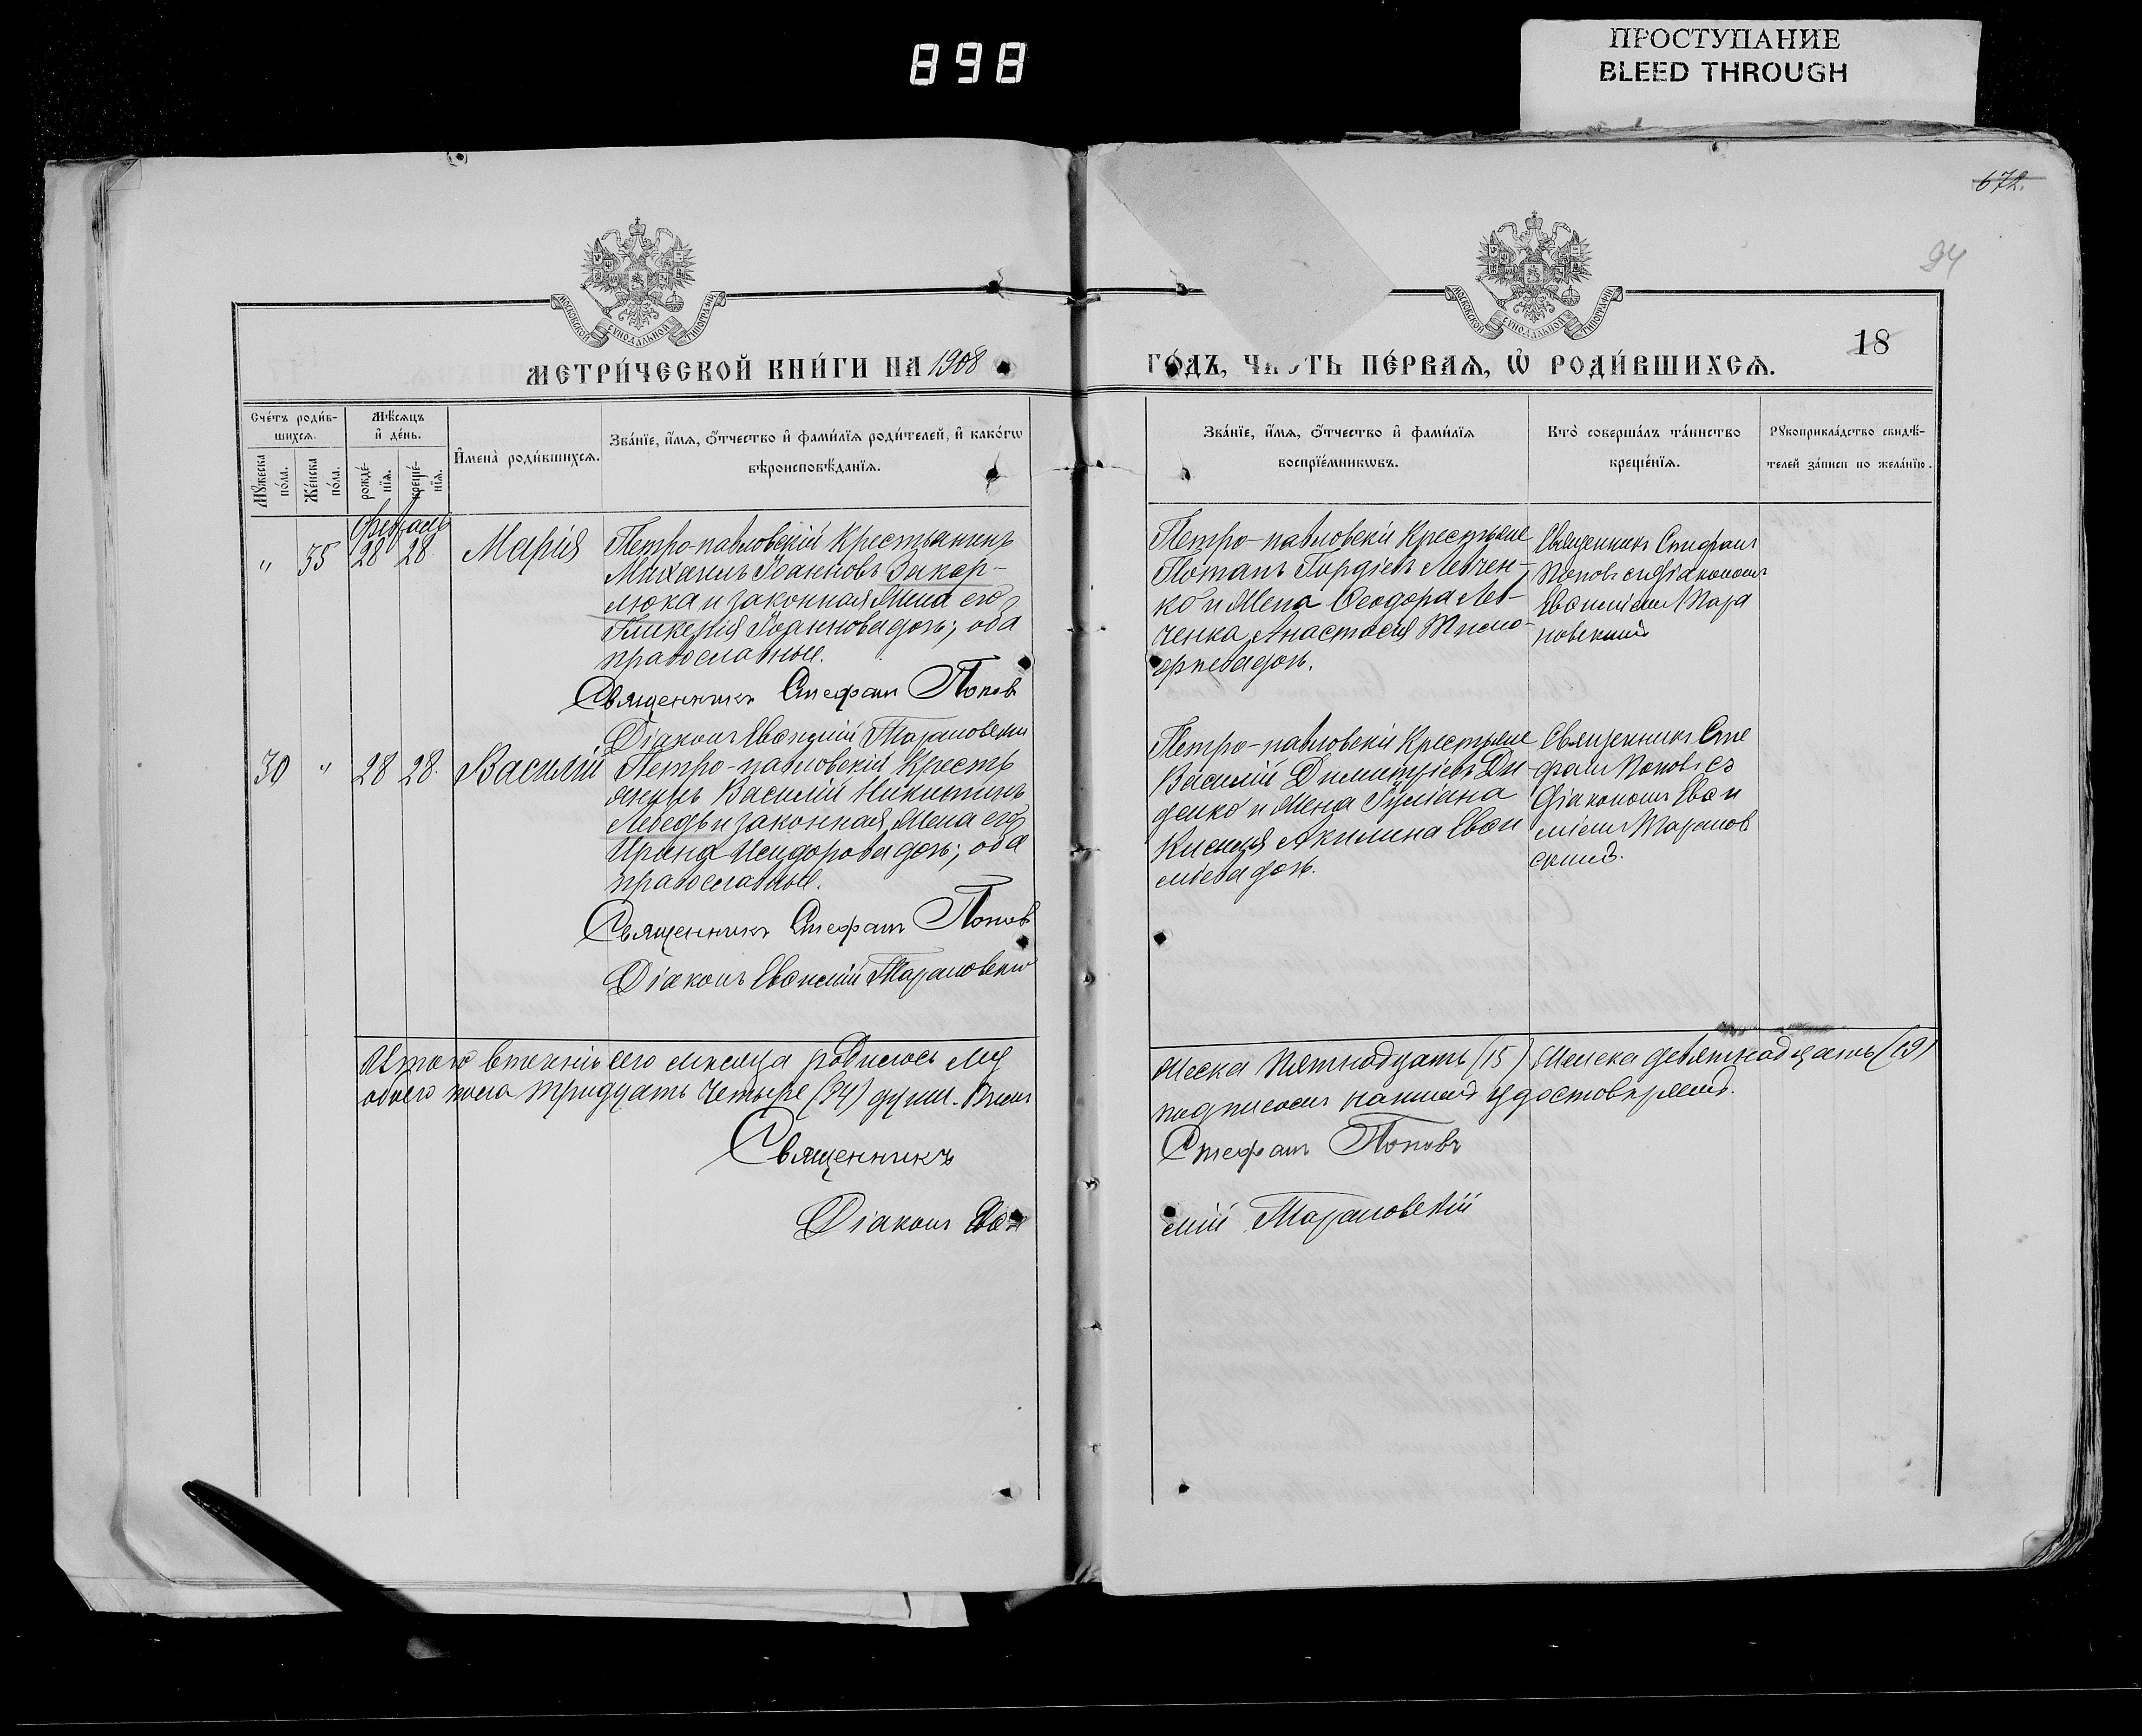 898
ПРОСТУПАНИЕ
BLEED THROUGH
672.
94
18
МОСКОВСКОЙ СѴНОДАЛЬНОЙ ТИПОГРАФІИ
МОСКОВСКОЙ СѴНОДАЛЬНОЙ ТИПОГРАФІИ
МЕТРИ́ЧЕСКОЙ КНИ́ГИ НА 1908
ГО́ДЪ, ЧАСТЬ ПЕ́РВАѦ, Ѽ РОДИ́ВШИХСѦ.
Сче́тъ роди́в-
шихсѧ.
Мꙋ́жеска по́ла.
Же́нска по́ла.
Мѣ́сѧцъ
и҆ де́нь.
рожде́-нїѧ.
креще́-нїѧ.
И҆мена̀ роди́вшихсѧ.
Зва́нїе, и҆́мѧ, ѻ҆́тчество и҆ фами́лїѧ роди́телей, и҆ како́гѡ
вѣроисповѣ́данїѧ.
Зва́нїе, и҆́мѧ, ѻ҆́тчество и҆ фами́лїѧ
воспрїе́мникѡвъ.
Кто̀ соверша́лъ та́инство
креще́нїѧ.
Рꙋкоприкла́дство свидѣ́-
телей за́писи по жела́нїю.
Февраль
" 35 28 28 Марія
Петро-павловскій Крестьянинъ
Михаилъ Іоанновъ Закор-
люка и законная жена его
Гликерія Іоаннова дочь; оба
православные.
Священникъ Стефанъ Поповъ
Діаконъ Евѳимій Тарановскій
Петро-павловскіи Крестьяне
Потапъ Гордіевъ Левчен-
ко и жена Ѳеодора Лев-
ченка, Анастасія Тимо-
ѳеева дочь.
Священникъ Стефанъ
Поповъ съ діакономъ
Евѳиміемъ Тара
новскимъ
30 " 28 28. Василій
Петро-павловскій Кресть
янинъ Василій Никитинъ
Лебедь и законная жена его
Ирина Исидорова дочь; оба
православные.
Священникъ Стефанъ Поповъ
Діаконъ Евѳимій Тарановскій
Петро-павловскіи Крестьяне
Василій Димитріевъ Ди
денко и жена Іуліана
Кисиля Акилина Евѳи
міева дочь.
Священникъ Сте
фанъ Поповъ съ
діакономъ Евѳи
міемъ Таранов
скимъ.
Итого втеченіе сего мѣсяца родилось
обоего пола тридцать четыре (34) души. Въ чемъ
жеска пятнадцать (15) женска девятнадцать (19)
подписомъ нашимъ удостовѣряемъ.
Священникъ
Стефанъ Поповъ
Діаконъ Евѳи
мій Тарановскій